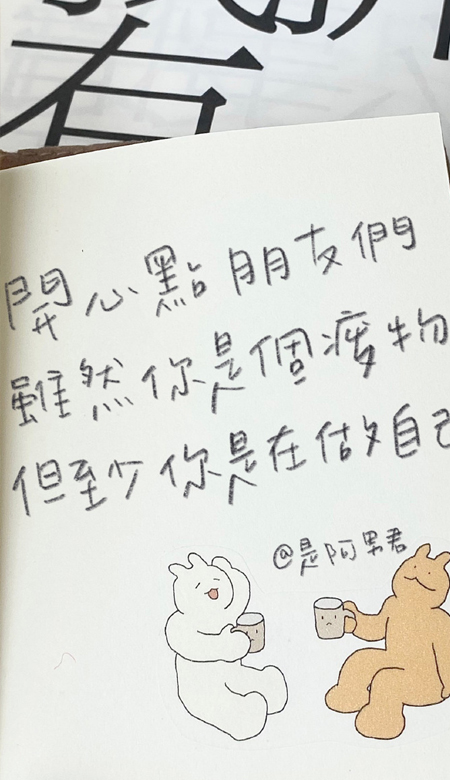 有
開心點朋友們
雖然你是個廢物
但至少你是在做自己
@是阿男君